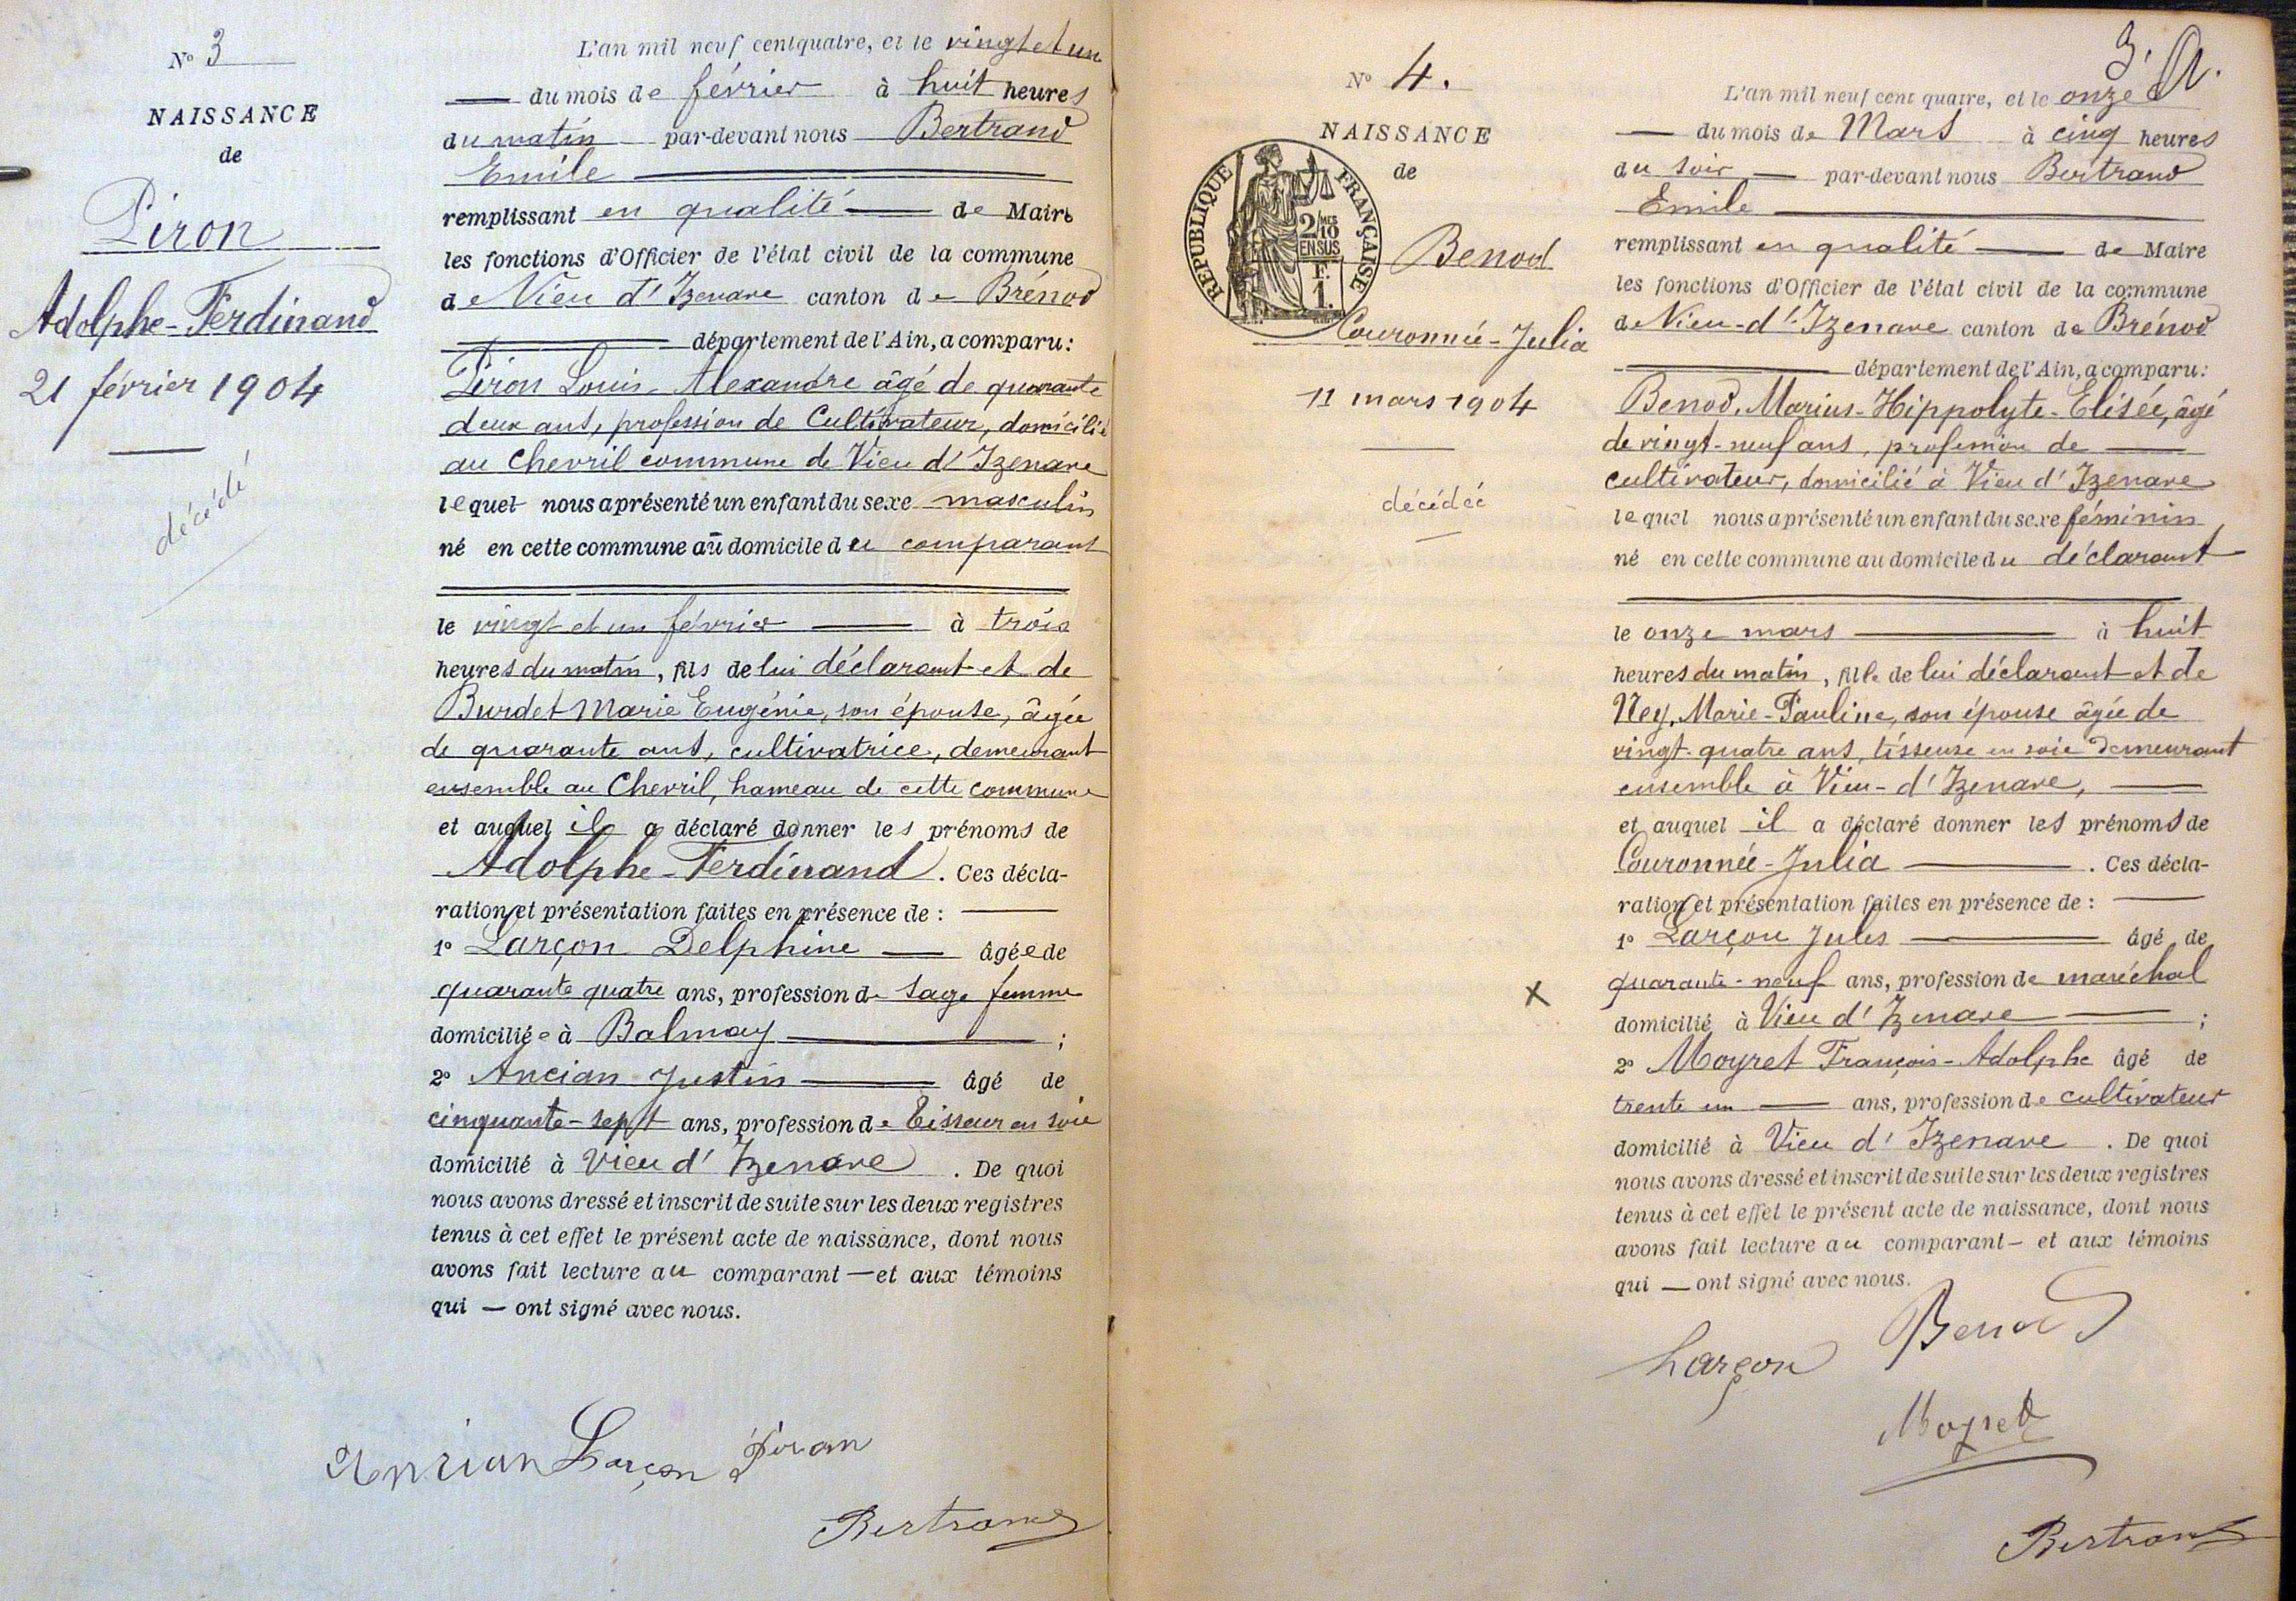 N° 3
NAISSANCE
de
Piron
Adolphe-Ferdinand
21 février 1904
décédé
L'an mil neuf cent quatre, et le vingt et un
du mois de février à huit heures
du matin par-devant nous Bertrand
Emile
remplissant en qualité de Maire
les fonctions d'Officier de l'état civil de la commune
de Vieu d'Izenave canton de Brénod
département de l'Ain, a comparu:
Piron Louis-Alexandre âgé de quarante
deux ans, profession de Cultivateur, domicilié
au Chevril commune de Vieu d'Izenave
lequel nous a présenté un enfant du sexe masculin
né en cette commune au domicile du comparant
le vingt et un février à trois
heures du matin, fils de lui déclarant et de
Burdet Marie Eugénie, son épouse, âgée
de quarante ans, cultivatrice, demeurant
ensemble au Chevril, hameau de cette commune
et auquel il a déclaré donner les prénoms de
Adolphe-Ferdinand. Ces décla-
ration et présentation faites en présence de :
1° Larçon Delphine âgée de
quarante quatre ans, profession de Sage femme
domiciliée à Balmay ;
2° Ancian Justin âgé de
cinquante-sept ans, profession de Tisseur en soie
domicilié à Vieu d'Izenave. De quoi
nous avons dressé et inscrit de suite sur les deux registres
tenus à cet effet le présent acte de naissance, dont nous
avons fait lecture au comparant — et aux témoins
qui — ont signé avec nous.
Ancian Larçon Piron
Bertrand
3.
N° 4.
NAISSANCE
de
RÉPUBLIQUE FRANÇAISE
2/10 MES
EN SUS
F.
1.
Benod
Couronnée-Julia
11 mars 1904
décédée
L'an mil neuf cent quatre, et le onze
du mois de Mars à cinq heures
du soir — par-devant nous Bertrand
Emile
remplissant en qualité de Maire
les fonctions d'Officier de l'état civil de la commune
de Vieu-d'Izenave canton de Brénod
département de l'Ain, a comparu:
Benod, Marius-Hippolyte-Elisée, âgé
de vingt-neuf ans, profession de
cultivateur, domicilié à Vieu d'Izenave
lequel nous a présenté un enfant du sexe féminin
né en cette commune au domicile du déclarant
le onze mars à huit
heures du matin, fille de lui déclarant et de
Ney, Marie-Pauline, son épouse âgée de
vingt-quatre ans, tisseuse en soie demeurant
ensemble à Vieu-d'Izenave,
et auquel il a déclaré donner les prénoms de
Couronnée-Julia. Ces décla-
ration et présentation faites en présence de :
1° Larçon Jules âgé de
x quarante-neuf ans, profession de maréchal
domicilié à Vieu d'Izenave ;
2° Moyret François-Adolphe âgé de
trente un ans, profession de cultivateur
domicilié à Vieu d'Izenave. De quoi
nous avons dressé et inscrit de suite sur les deux registres
tenus à cet effet le présent acte de naissance, dont nous
avons fait lecture au comparant — et aux témoins
qui — ont signé avec nous.
Benod
Larçon
Moyret
Bertrand